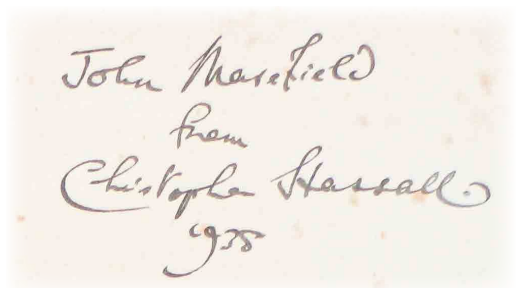 John Masefield
from
Christopher Hassall.
1938